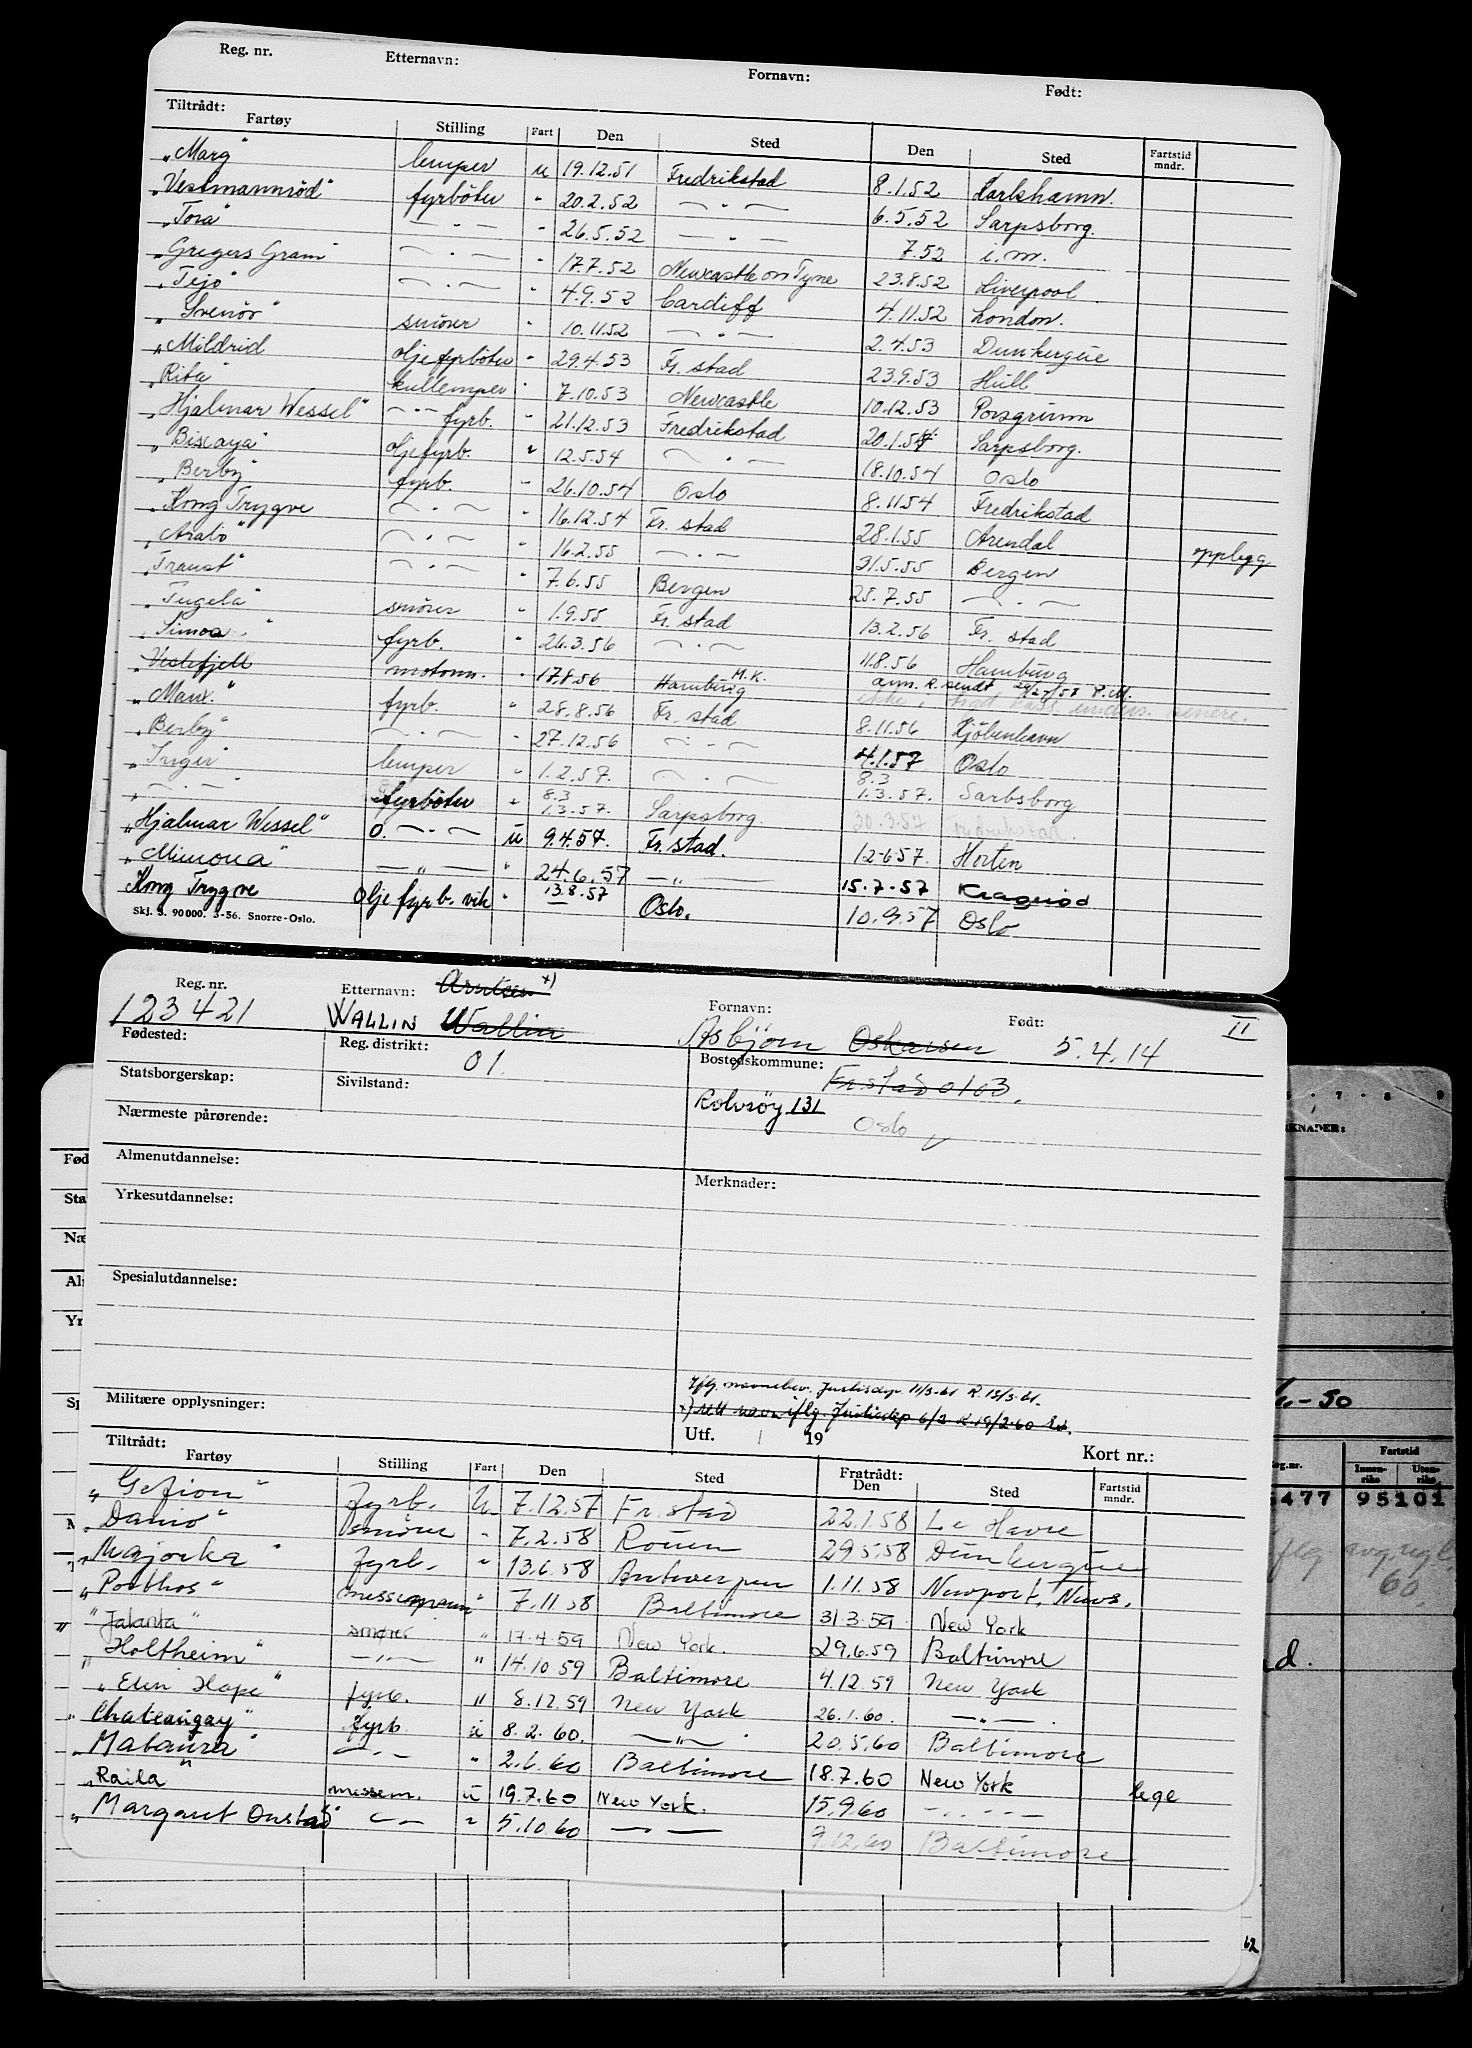 Reg. nr. Etternavn: Fornavn: Født:
Tiltrådt:
Fartøy Stilling Fart Den Sted Den Sted Fartstid mndr.
"Marg" lemper u 19.12.51 Fredrikstad 8.1.52 Karlshamn.
"Vestmannrød" fyrbøter " 20.2.52 — " — 6.5.52 Sarpsborg.
"Tora" — " — " 26.5.52 — " — 7.52 i.m.
"Gregers Gram" — " — " 17.7.52 Newcastle on Tyne 23.8.52 Liverpool
"Tejo" — " — " 4.9.52 Cardiff 4.11.52 London.
"Svenør" smører " 10.11.52 — " — 2.4.53 Dunkerque
"Mildrid oljefyrbøter " 29.4.53 Fr. stad 23.9.53 Hull
"Rita" kullemper " 7.10.53 Newcastle 10.12.53 Porsgrunn
"Hjalmar Wessel" — " — fyrb. " 21.12.53 Fredrikstad 20.1.54 Sarpsborg.
"Biscaya" oljefyrb. " 12.5.54 — " — 18.10.54 Oslo
"Berby" fyrb. " 26.10.54 Oslo 8.11.54 Fredrikstad
"Kong Trygve — " — " 16.12.54 Fr. stad 28.1.55 Arendal opplegg
"Aralo" — " — " 16.2.55 — " — 31.5.55 Bergen
"Traust" — " — " 7.6.55 Bergen 25.7.55 — " —
"Tugela" smører " 1.9.55 Fr. stad 13.2.56 Fr. stad
"Simoa" fyrb. " 26.3.56 — " — 11.8.56 Hamburg
"Vestefjell motorm. " 17.8.56 Hamburg M.K. ann. R. sendt
"Marx." fyrb. " 28.8.56 Fr. stad 8.11.56 Kjöbenhavn
"Berby" — " — " 27.12.56 — " — 4.1.57 Oslo
"Inger" lemper " 1.2.57. — " — 8.3 1.3.57. Sarbsborg
" — " — " fyrbøter " 8.3 1.3.57. Sarpsborg. 30.3.57 Fredrikstad.
"Hjalmar Wessel" o. — " — u 9.4.57. Fr. stad. 12-6 57. Horten
"Mimona" — " — " 24.6.57 — " — 15.7-57 Kragerød
Kong Trygve olje fyrb. vik " 13.8.57 Oslo. 10.9.57 Oslo
Skj. S. 90 000. 3-56. Snorre-Oslo.
Reg. nr. Etternavn: Arntsen x) Fornavn: Født: II
123421 WALLIN Wallin Asbjörn Oskarsen 5.4.14
Fødested: Reg. distrikt: 01. Bostedskommune: Fr.stad 0103.
Statsborgerskap: Sivilstand: Rolvsøy 131
Nærmeste pårørende: Oslo
Almenutdannelse:
Yrkesutdannelse: Merknader:
Spesialutdannelse:
Iflg. navnebev. Justisdep. 11/3-61 R. 15/3-61.
Militære opplysninger: x) rett navn iflg. Justisdep 6/2 R. 19/2-60
Utf. / 19 Kort nr.:
Tiltrådt: Fratrådt:
Fartøy Stilling Fart Den Sted Den Sted Fartstid mndr.
"Gefion" fyrb. U. 7.12.57 Fr. stad 22.1.58 Le Havre
"Danio" smører " 7.2.58 Rouen 29.5.58 Dunkerque
"Majorka" fyrb. " 13.6.58 Antwerpen 1.11.58 Newport, News.
"Porthos" messemann " 7.11 58 Baltimore 31.3.59 New York
"Jalanta" smører " 17.4.59 New York. 29.6.59 Baltimore
"Holtheim" — " — " 14.10 59 Baltimore 4.12.59 New York
"Elin Hope" fyrb. " 8.12.59 New York 26.1.60. — " — .
"Chateaugay" fyrb u 8.2.60. — " — . 20.5.60 Baltimore
"Mataura" — " — " 2.6.60 Baltimore 18.7.60 New York
"Raila" messem. u 19.7.60 New York. 15.9.60 — " — lege
"Margaret Onstad" — " — " 5.10.60 — " — 9.12.60 Baltimore
6-50
Fartstid
Reg.nr. Innenriks Utenriks
477 95101
60.
62